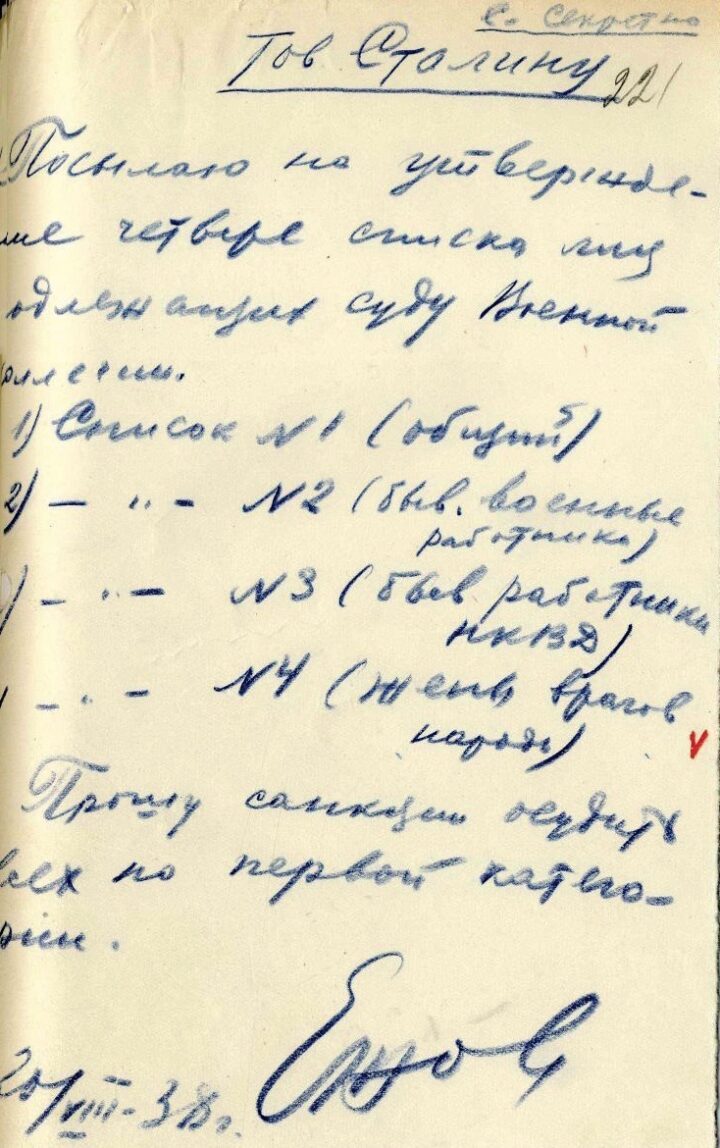 С. Секретно
Тов Сталину
221
Посылаю на утвержде-
ние четыре списка лиц
одлежащих суду Военной
оллегии.
1) Список №1 (общий)
2) — " — №2 (быв. военные
работники)
) — " — №3 (быв работники
НКВД)
) — " — №4 (жены врагов
народа)
V
Прошу санкции осудить
всех по первой катего-
рии.
Ежов
20/VIII-38г.